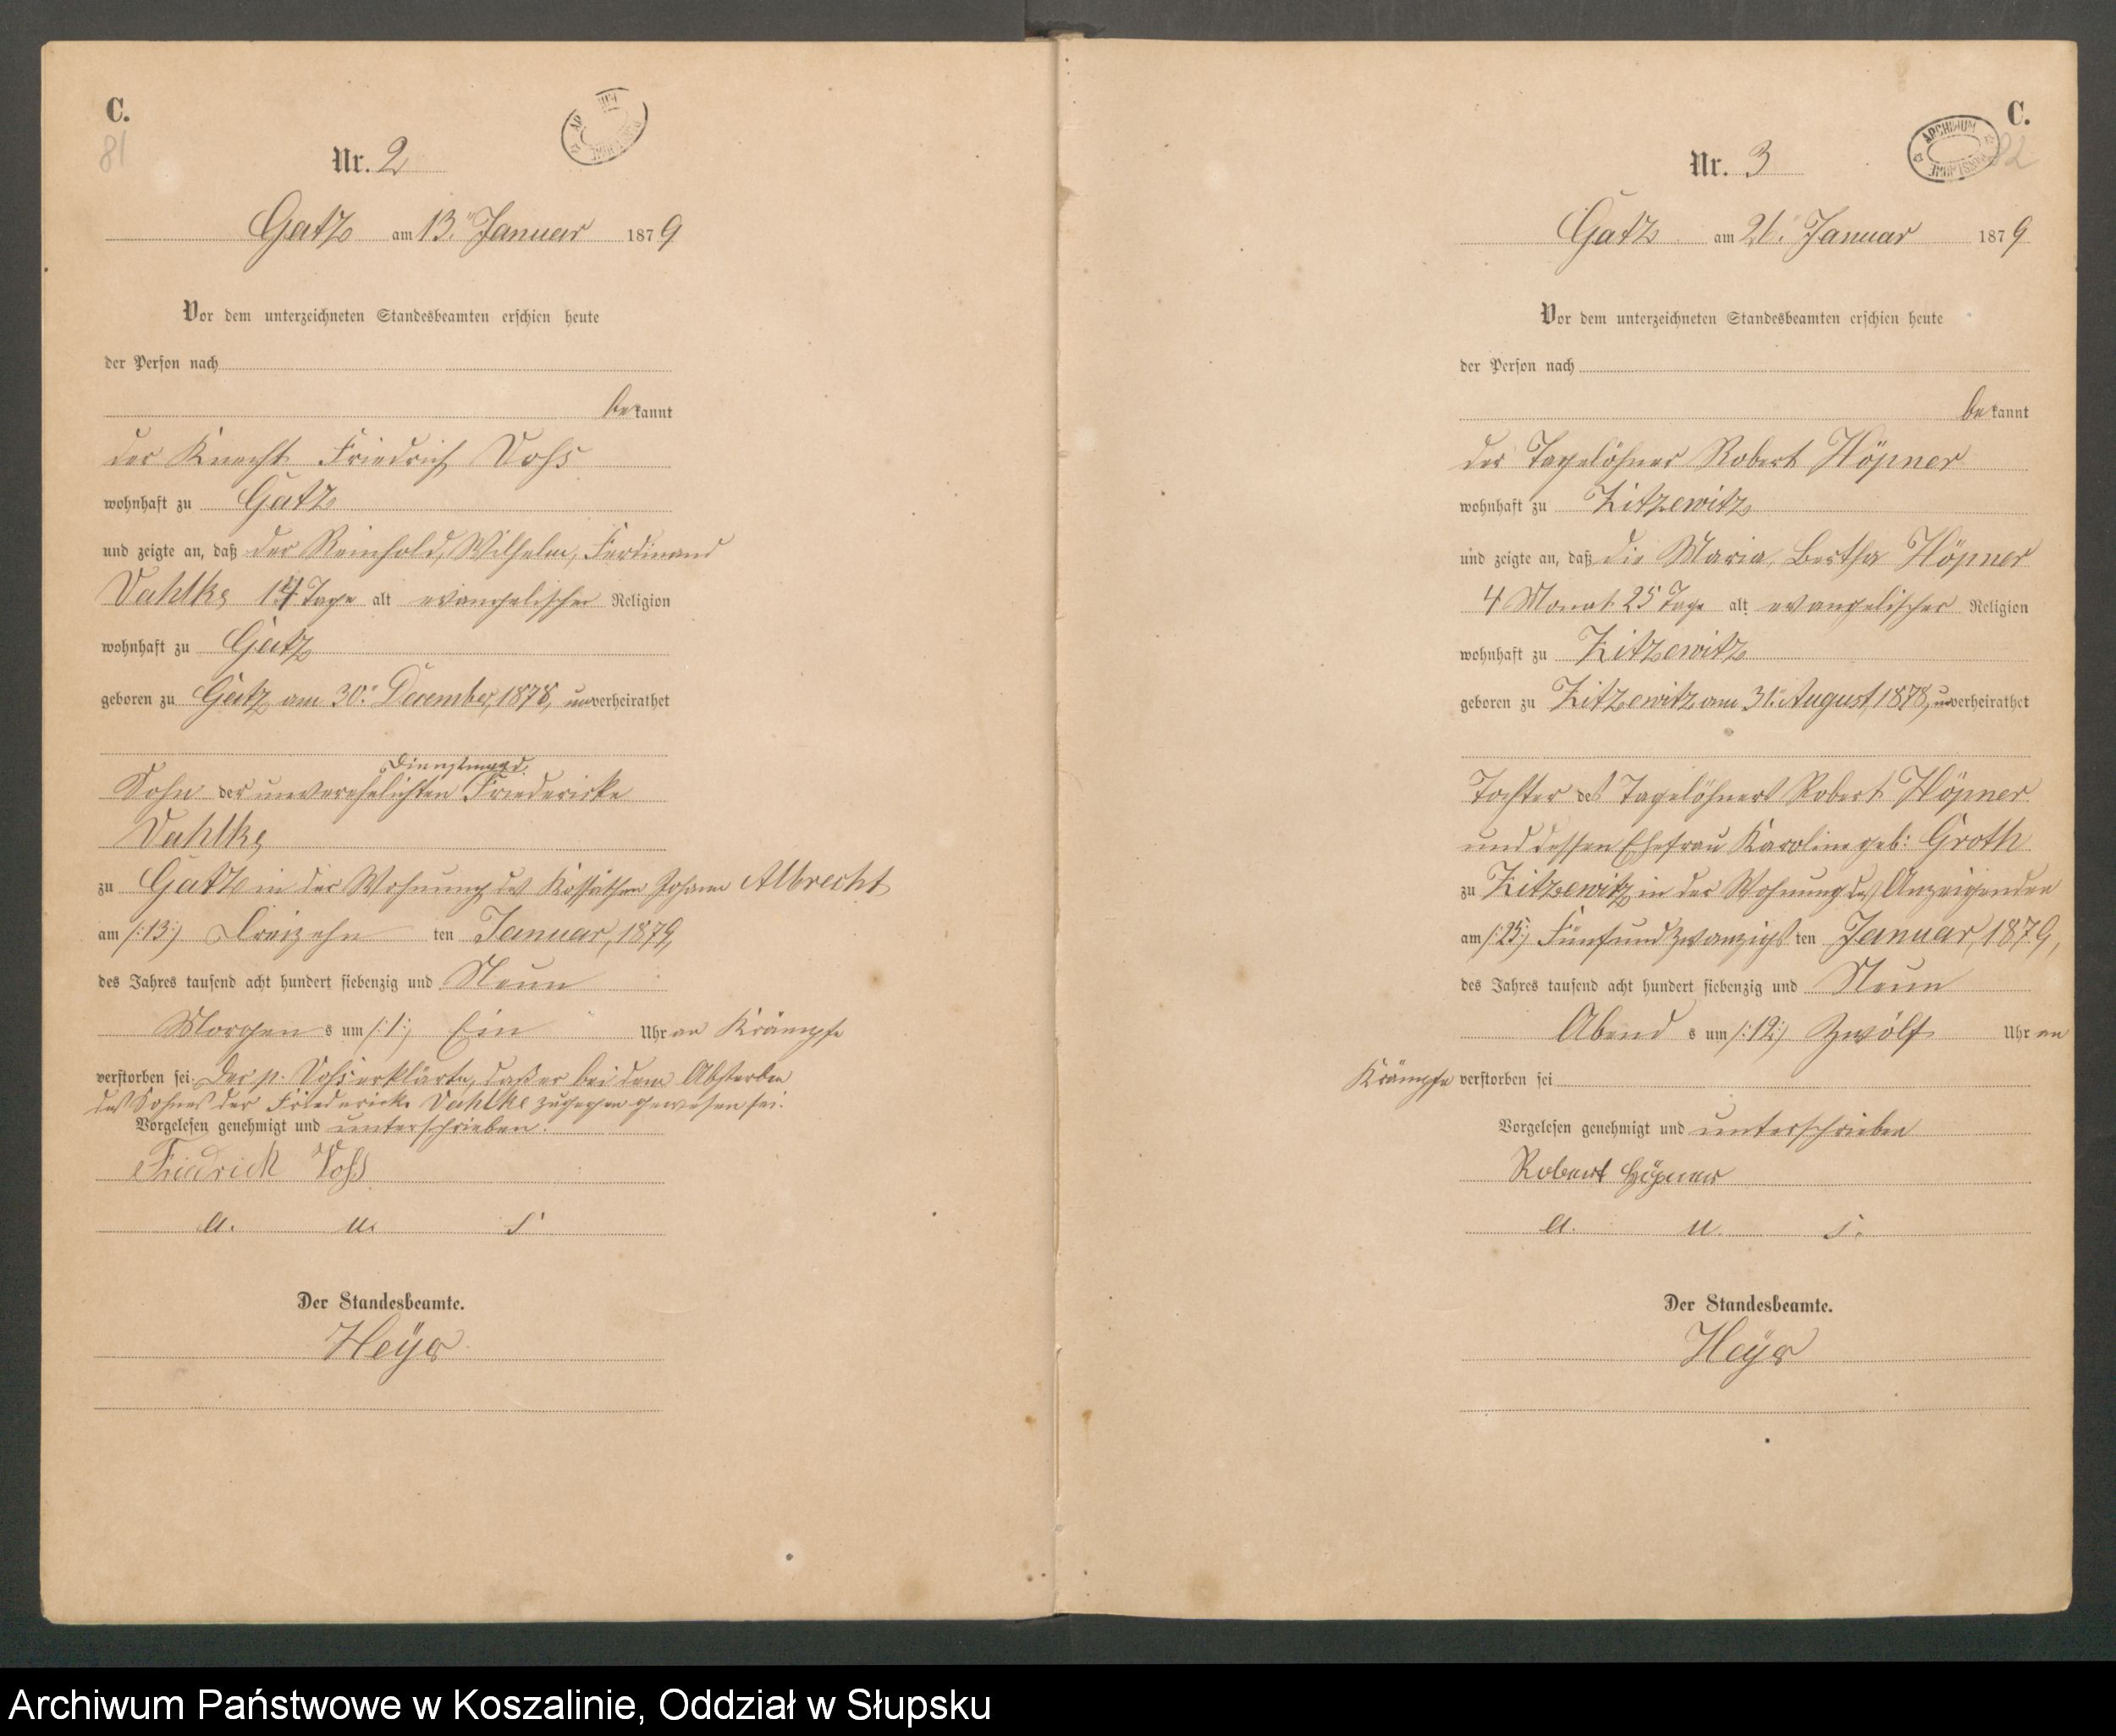 C.
81
Nr. 2
Gatz am 13. Januar 1879
Vor dem unterzeichneten Standesbeamten erschien heute
der Person nach
bekannt
der Knecht Friedrich Voß
wohnhaft zu Gatz
und zeigte an, daß der Reinhold, Wilhelm, Ferdinand
Vahlke 14 Tage alt evangelischer Religion
wohnhaft zu Gatz
geboren zu Gatz am 30. December, 1878, unverheirathet
Dienstmagd
Sohn der unverehelichten Friedericke
Vahlke
zu Gatz in der Wohnung des Kossäthen Johann Albrecht
am /:13:/ Dreizehn ten Januar, 1879,
des Jahres tausend acht hundert siebenzig und Neun
Morgens um /:1:/ Ein Uhr an Krämpfe
verstorben sei. Der p. Voß erklärte, daß er bei dem Absterben
des Sohnes der Friedericke Vahlke zugegen gewesen sei.
Vorgelesen genehmigt und unterschrieben.
Friedrich Voß
a. u. s
Der Standesbeamte.
Heyer
C.
82
ARCHIWUM PAŃSTWOWE
Nr. 3
Gatz am 26. Januar 1879
Vor dem unterzeichneten Standesbeamten erschien heute
der Person nach
bekannt
der Tagelöhner Robert Höpner
wohnhaft zu Zitzewitz
und zeigte an, daß die Maria, Bertha Höpner
4 Monat 25 Tage alt evangelischer Religion
wohnhaft zu Zitzewitz
geboren zu Zitzewitz am 31. August, 1878, unverheirathet
Tochter des Tagelöhners Robert Höpner
und dessen Ehefrau Karoline geb: Groth
zu Zitzewitz in der Wohnung des Anzeigenden
am /:25:/ Fünfundzwanzigsten Januar, 1879,
des Jahres tausend acht hundert siebenzig und Neun
Abends um /:12:/ Zwölf Uhr an
Krämpfe verstorben sei
Vorgelesen genehmigt und unterschrieben
Robert Höpner
a. u. s.
Der Standesbeamte.
Heyer
Archiwum Państwowe w Koszalinie, Oddział w Słupsku